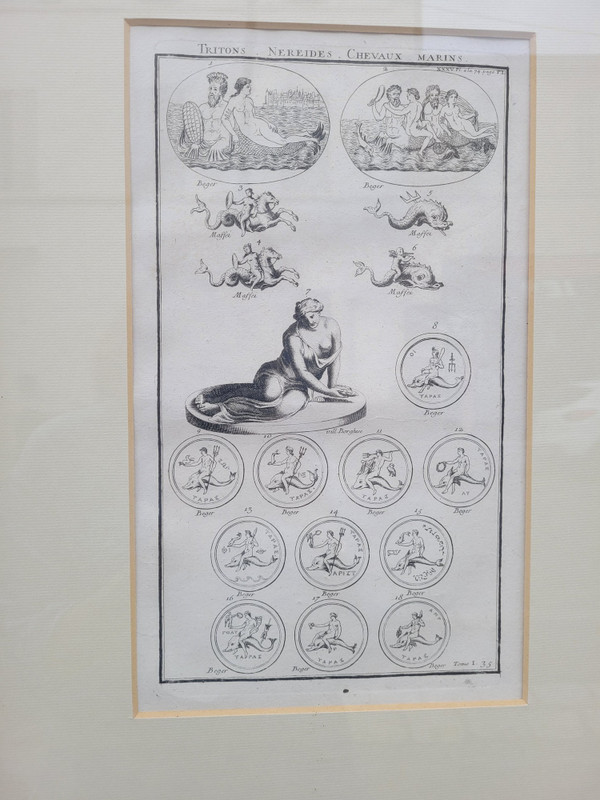 TRITONS NEREIDES. CHEVAUX MARINS
1 2 XXXV. Pl. a la 74 page T. I
Beger Beger
3 5
Maffei Maffei
4 6
Maffei Maffei
7
8
ΤΑΡΑΣ
Beger
vill. Borghes
9 10 11 12
ΤΑΡΑΣ ΤΑΡΑΣ ΤΑΡΑΣ ΤΑΡΑΣ
Beger Beger Beger Beger
13 14 15
ΤΑΡΑΣ ΤΑΡΑΣ
ΑΡΙΣΤ
Beger Beger Beger
16 17 18
ΤΑΡΑΣ ΤΑΡΑΣ
Beger Beger Beger Tome I. 35